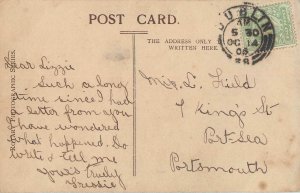 POST CARD.
THE ADDRESS ONLY
WRITTEN HERE.
DUBLIN
5 30
OC 14
28
Dear Lizzie
Such a long
time since I had
a letter from you
I have wondered
what happened. Do
write & tell me
Yours truly
Miss L. Field
7 King's St
Port-Sea
Portsmouth